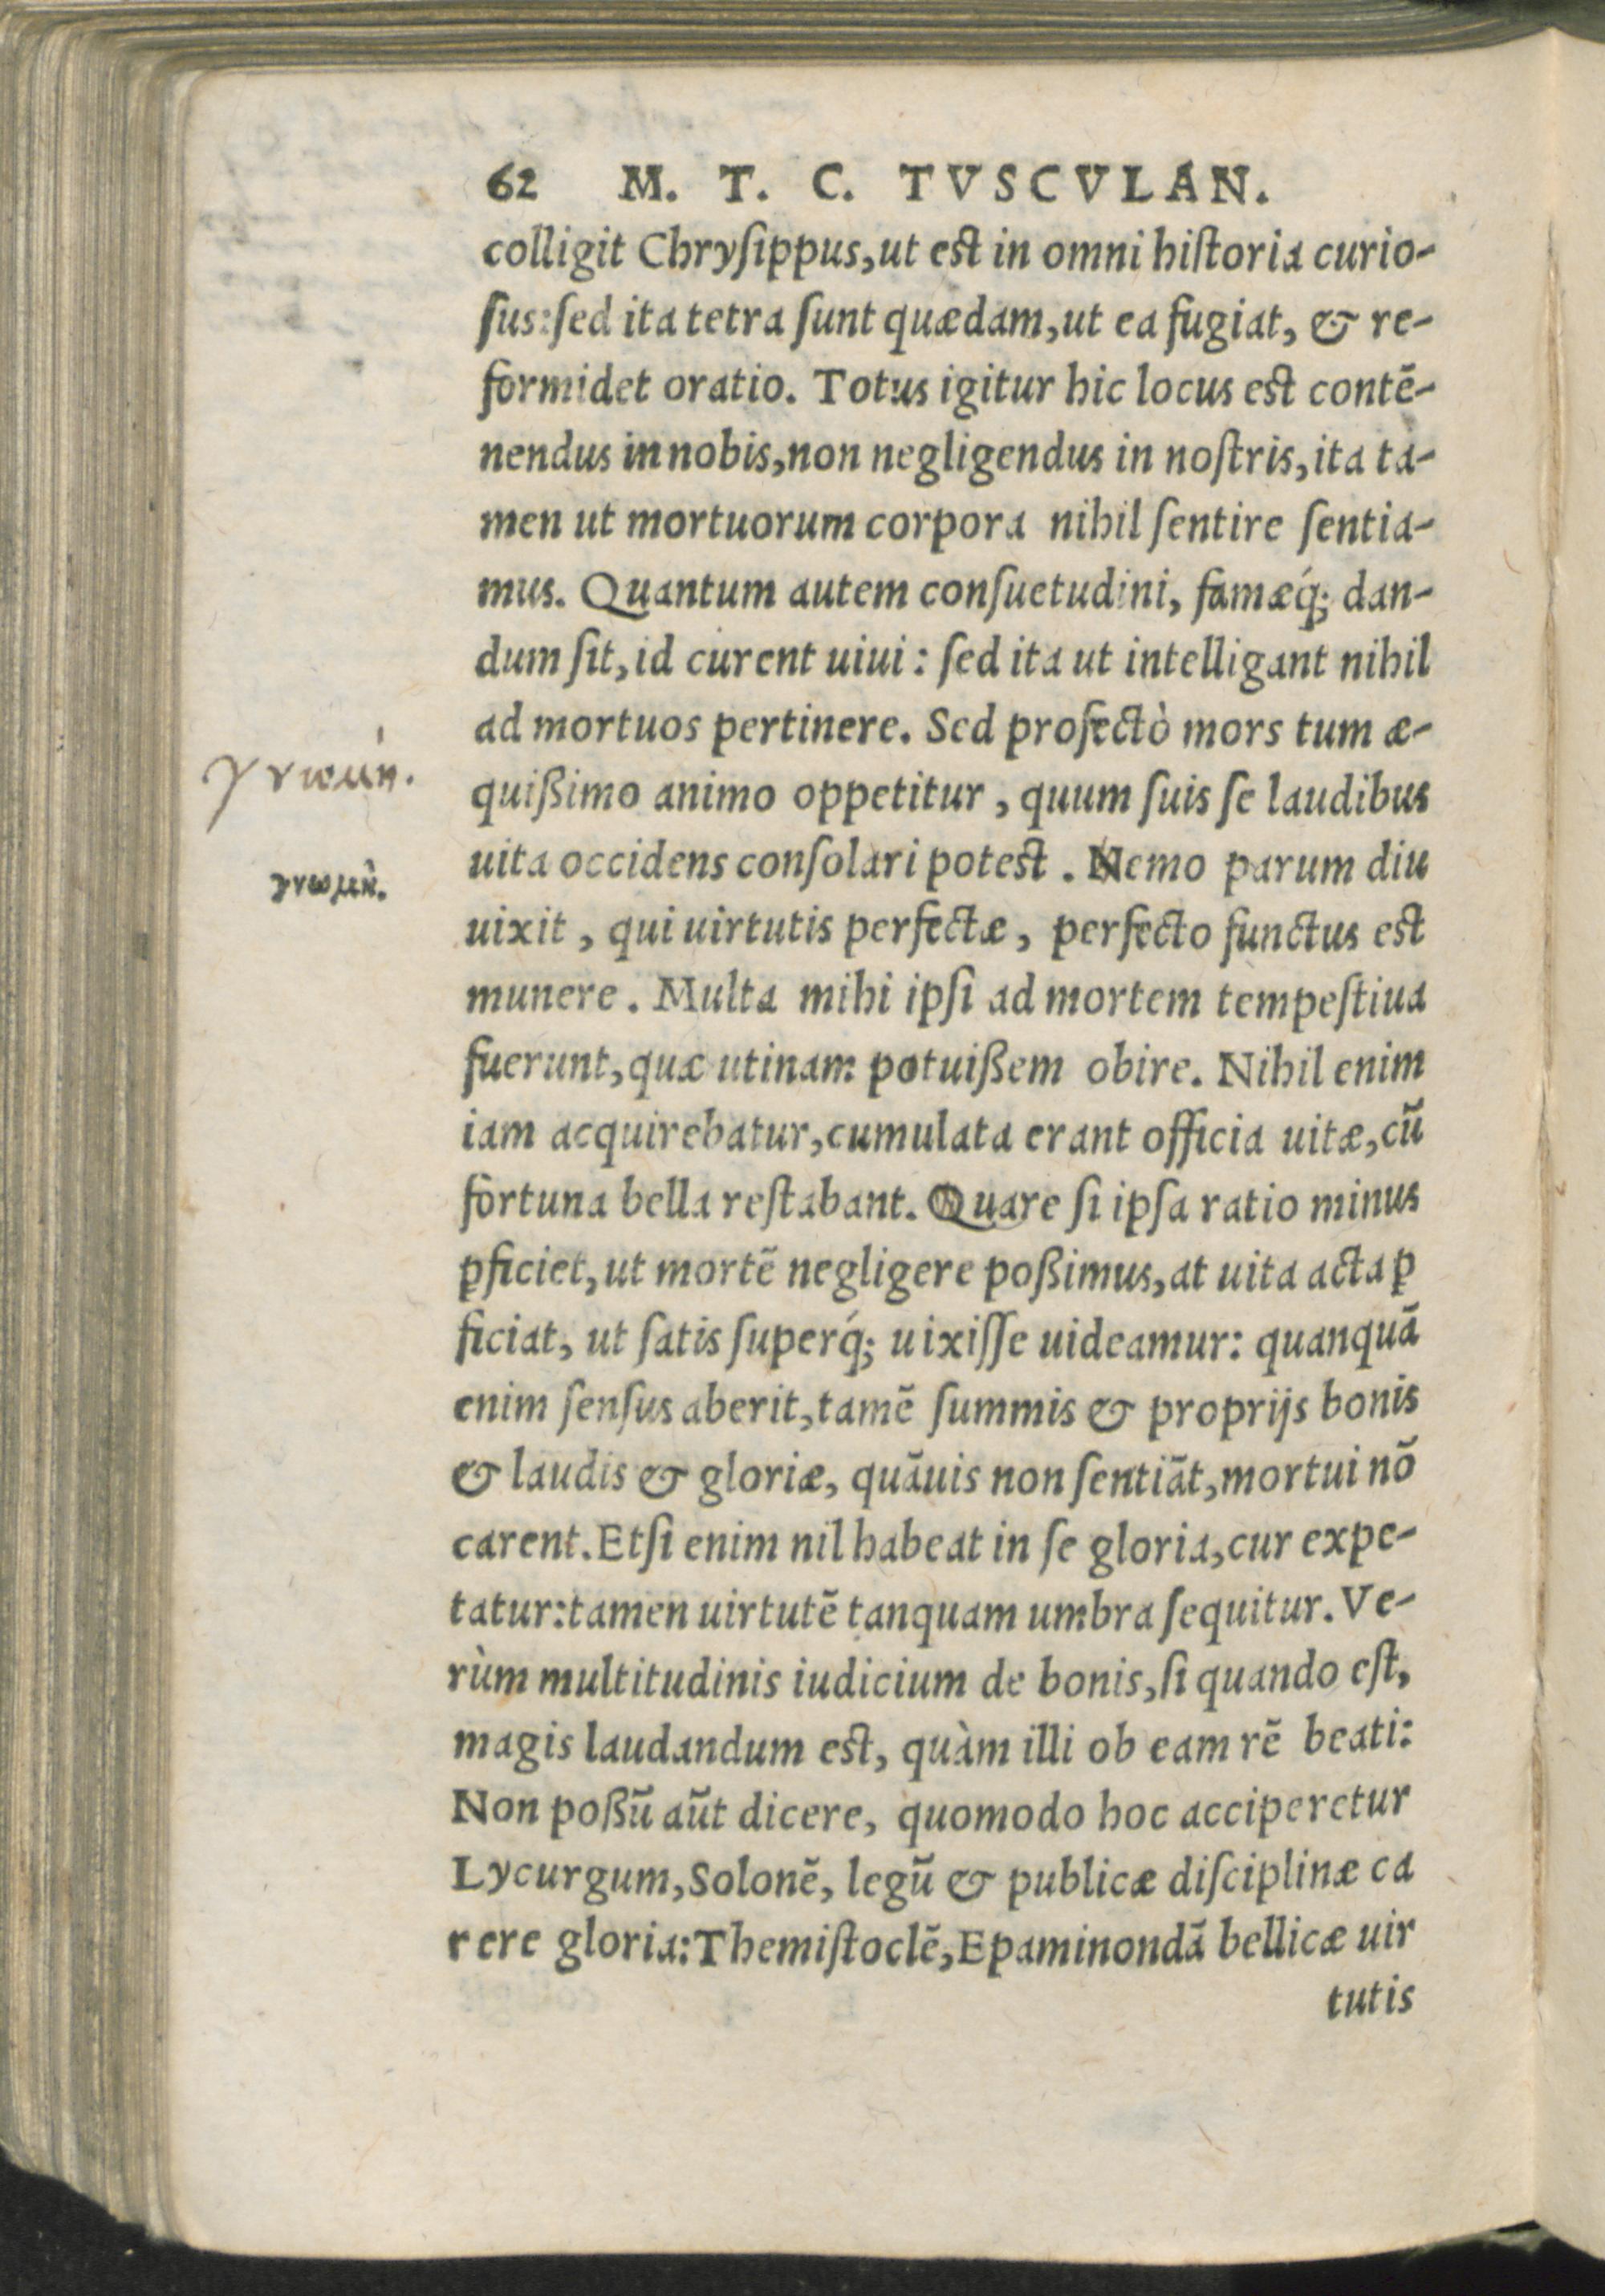 62 M. T. C. TVSCVLAN.
colligit Chryſippus,ut est in omni hiſtoria curio-
ſus:ſed ita tetra ſunt quædam,ut ea fugiat, & re-
formidet oratio. Totus igitur hic locus est contē-
nendus in nobis,non negligendus in noſtris,ita ta-
men ut mortuorum corpora nihil ſentire ſentia-
mus. Quantum autem conſuetudini, famæq́; dan-
dum ſit,id curent uiui: ſed ita ut intelligant nihil
ad mortuos pertinere. Sed profectò mors tum æ-
γνωμή.
quißimo animo oppetitur, quum ſuis ſe laudibus
uita occidens conſolari potest. Nemo parum diu
γνωμὴ.
uixit, qui uirtutis perfectæ, perfecto functus est
munere. Multa mihi ipſi ad mortem tempeſtiua
fuerunt,quæ utinam potuißem obire. Nihil enim
iam acquirebatur,cumulata erant officia uitæ,cū
fortuna bella reſtabant. Quare ſi ipſa ratio minus
ꝑficiet,ut mortē negligere poßimus,at uita acta ꝑ
ficiat, ut ſatis ſuperq́; uixiſſe uideamur: quanquā
enim ſenſus aberit,tamē ſummis & proprijs bonis
& laudis & gloriæ, quāuis non ſentiāt,mortui nō
carent.Etſi enim nil habeat in ſe gloria,cur expe-
tatur:tamen uirtutē tanquam umbra ſequitur. Ve-
rùm multitudinis iudicium de bonis,ſi quando eſt,
magis laudandum est, quàm illi ob eam rē beati:
Non poßū aūt dicere, quomodo hoc acciperetur
Lycurgum,Solonē, legū & publicæ diſciplinæ ca
rere gloria:Themiſtoclē,Epaminondā bellicæ uir
tutis